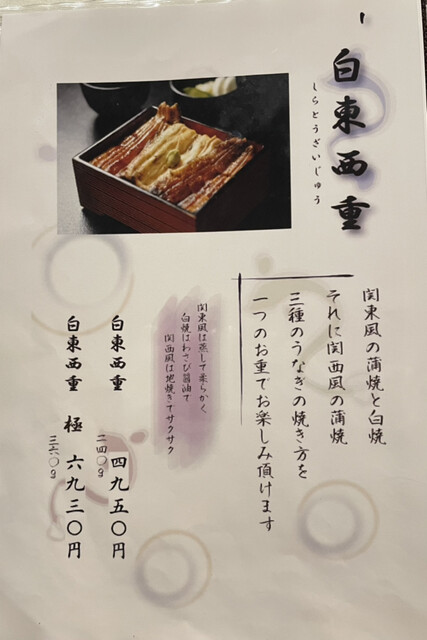 白東西重
しらとうざいじゅう
関東風の蒲焼と白焼
それに関西風の蒲焼
三種のうなぎの焼き方を
一つのお重でお楽しみ頂けます
関東風は蒸して柔らかく
白焼はわさび醤油で
関西風は地焼きでサクサク
白東西重 四九五〇円
二四〇g
白東西重 極 六九三〇円
三六〇g